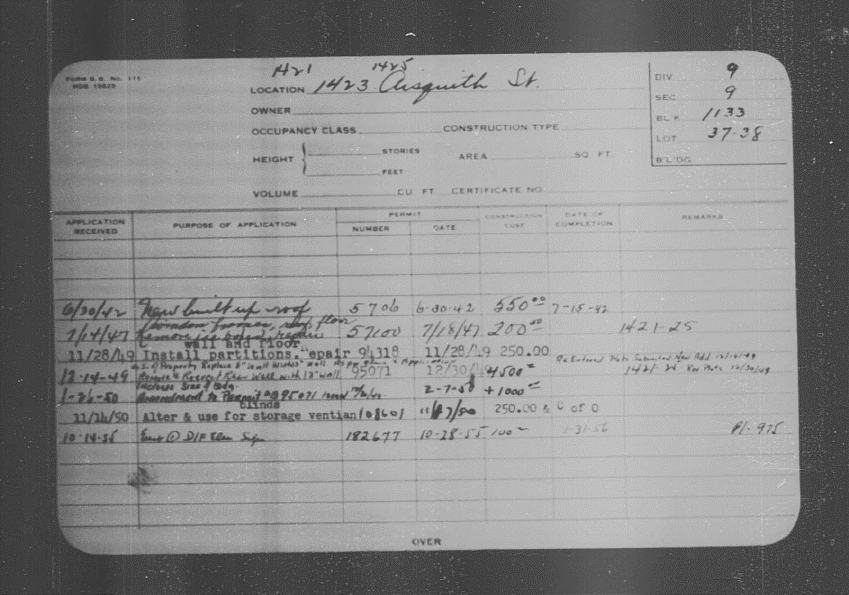 FORM B. B. No. 115
1421 1425
LOCATION 1423 Aisquith St.
DIV 9
SEC 9
BL'K 1133
LOT 37-38
B'L'DG
OWNER
OCCUPANCY CLASS CONSTRUCTION TYPE
HEIGHT STORIES FEET AREA SQ FT
VOLUME CU FT CERTIFICATE NO
APPLICATION RECEIVED PURPOSE OF APPLICATION PERMIT NUMBER DATE CONSTRUCTION COST DATE OF COMPLETION REMARKS
6/30/42 New built up roof 5706 6-30-42 550.00 7-15-42
window frames, floor
7/14/47 Remove repair 57100 7/18/47 200.00 1421-25
wall and floor
11/28/49 Install partitions. epair 94318 11/28/49 250.00
of Property Replace Wall
12-14-49 Rear Wall with 12" wall 95071 12/30/49 4500 12/30/49
1-26-50 Amendment to Permit # 95071 2-7-50 +1000
blinds
11/14/50 Alter & use for storage ventian 101601 11/17/50 250.00 & C of O
10-14-55 Erect D/F Elec Sign 182677 10-28-55 100 1-31-56 Pl-975
OVER